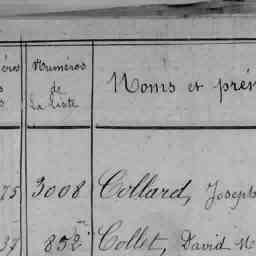 Numéros
de
la liste
Noms et
75 3008 Collard, Joseph
37 852 Collet, David